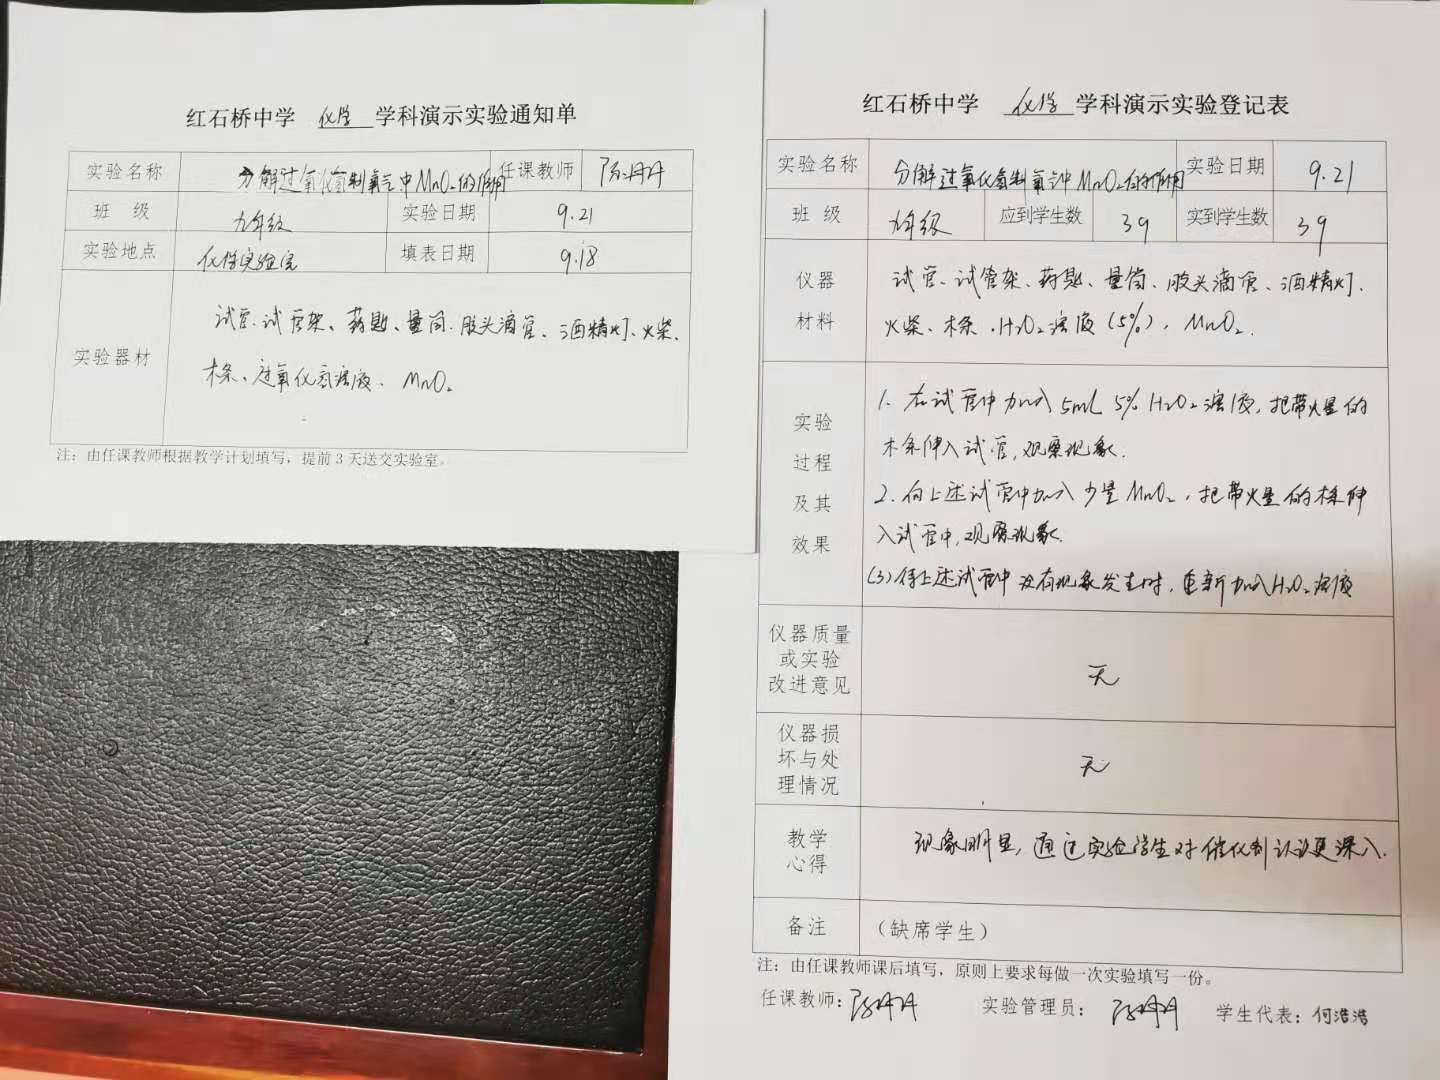 红石桥中学 化学 学科演示实验通知单
实验名称 分解过氧化氢制氧气中MnO₂的作用 任课教师 陈丹丹
班 级 九年级 实验日期 9.21
实验地点 化学实验室 填表日期 9.18
实验器材
试管、试管架、药匙、量筒、胶头滴管、酒精灯、火柴、
木条、过氧化氢溶液、MnO₂
注：由任课教师根据教学计划填写，提前3天送交实验室。
红石桥中学 化学 学科演示实验登记表
实验名称 分解过氧化氢制氧气中MnO₂的作用 实验日期 9.21
班 级 九年级 应到学生数 39 实到学生数 39
仪器
材料
试管、试管架、药匙、量筒、胶头滴管、酒精灯、
火柴、木条、H₂O₂溶液(5%)，MnO₂.
实验
过程
及其
效果
1. 在试管中加入5mL 5% H₂O₂溶液，把带火星的
木条伸入试管，观察现象.
2. 向上述试管中加入少量MnO₂，把带火星的木条伸
入试管中，观察现象.
(3)待上述试管中没有现象发生时，重新加入H₂O₂溶液
仪器质量
或实验
改进意见
无
仪器损
坏与处
理情况
无
教学
心得
现象明显，通过实验学生对催化剂认识更深入.
备注 （缺席学生）
注：由任课教师课后填写，原则上要求每做一次实验填写一份。
任课教师：陈丹丹 实验管理员：陈丹丹 学生代表：何浩浩